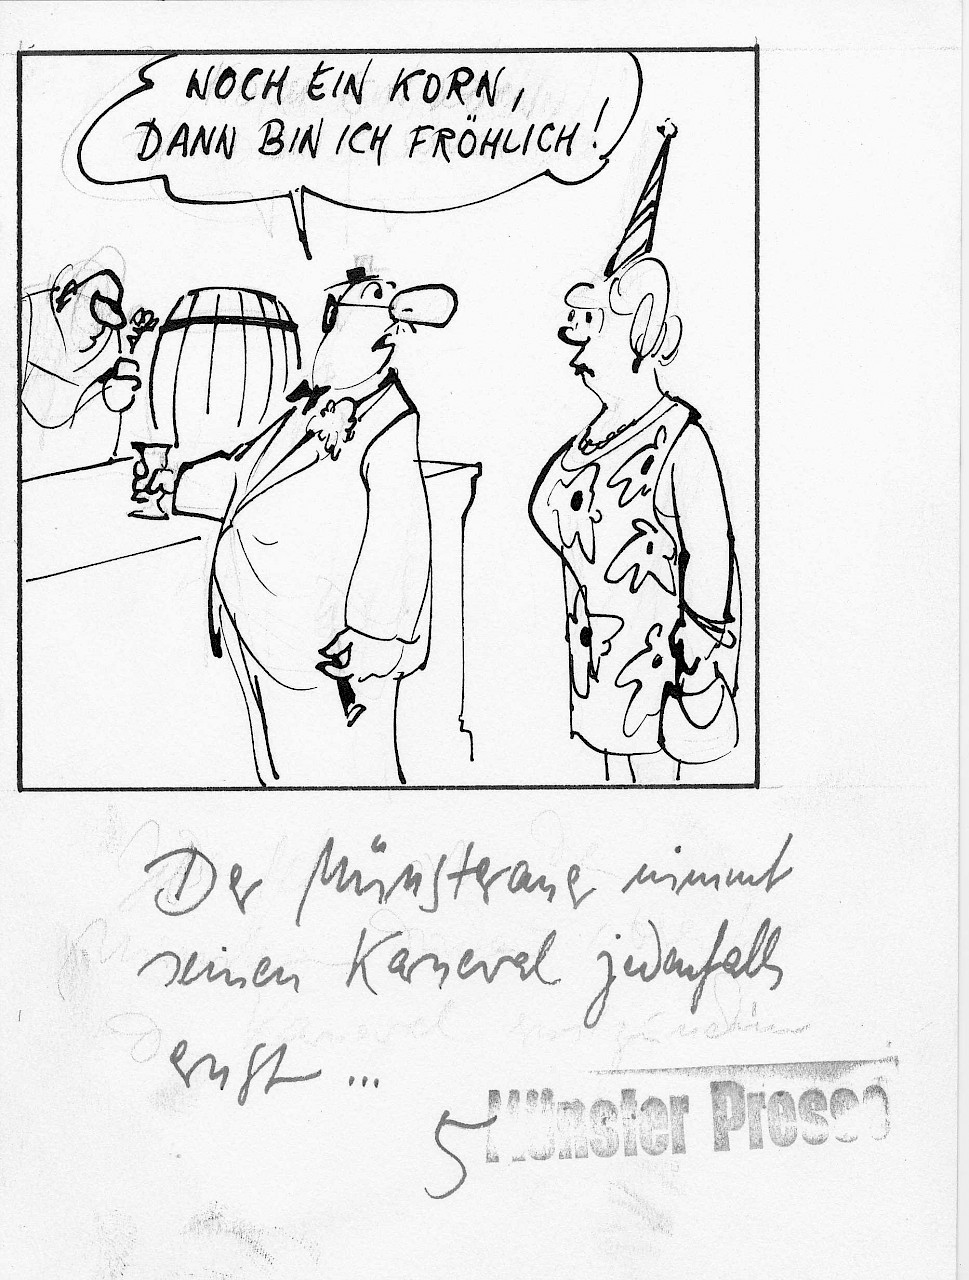 NOCH EIN KORN,
DANN BIN ICH FRÖHLICH!
Der Münsteraner nimmt
seinen Karneval jedenfalls
ernst ...
5
Münster Presse